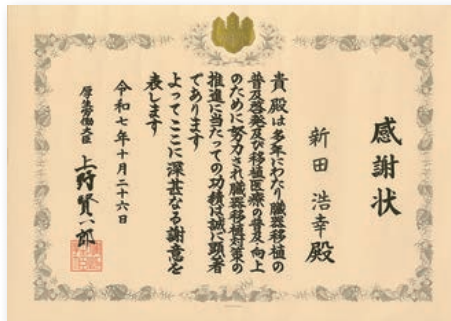 感謝状
新田 浩幸 殿
貴殿は多年にわたり臓器移植の
普及啓発及び移植医療の普及向上
のために努力され臓器移植対策の
推進に当たっての功績は誠に顕著
であります
よってここに深甚なる謝意を
表します
令和七年十月二十六日
厚生労働大臣 上野賢一郎